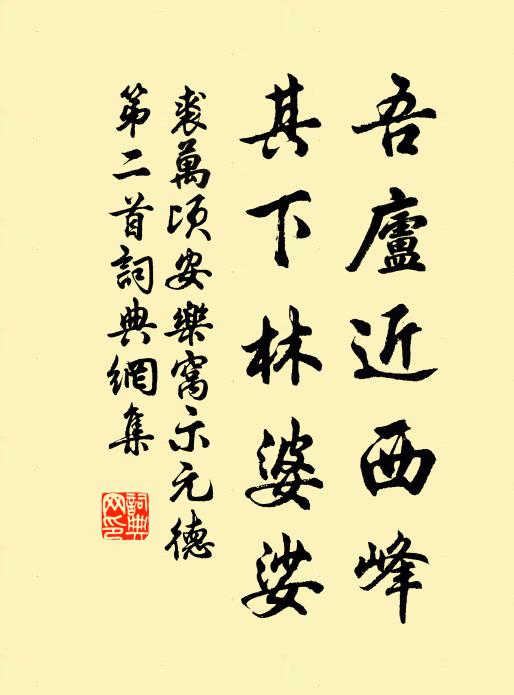 吾廬近西峰
其下林婆娑
裘萬頃安樂窩示元德
第二首詞典網集
詞典網印